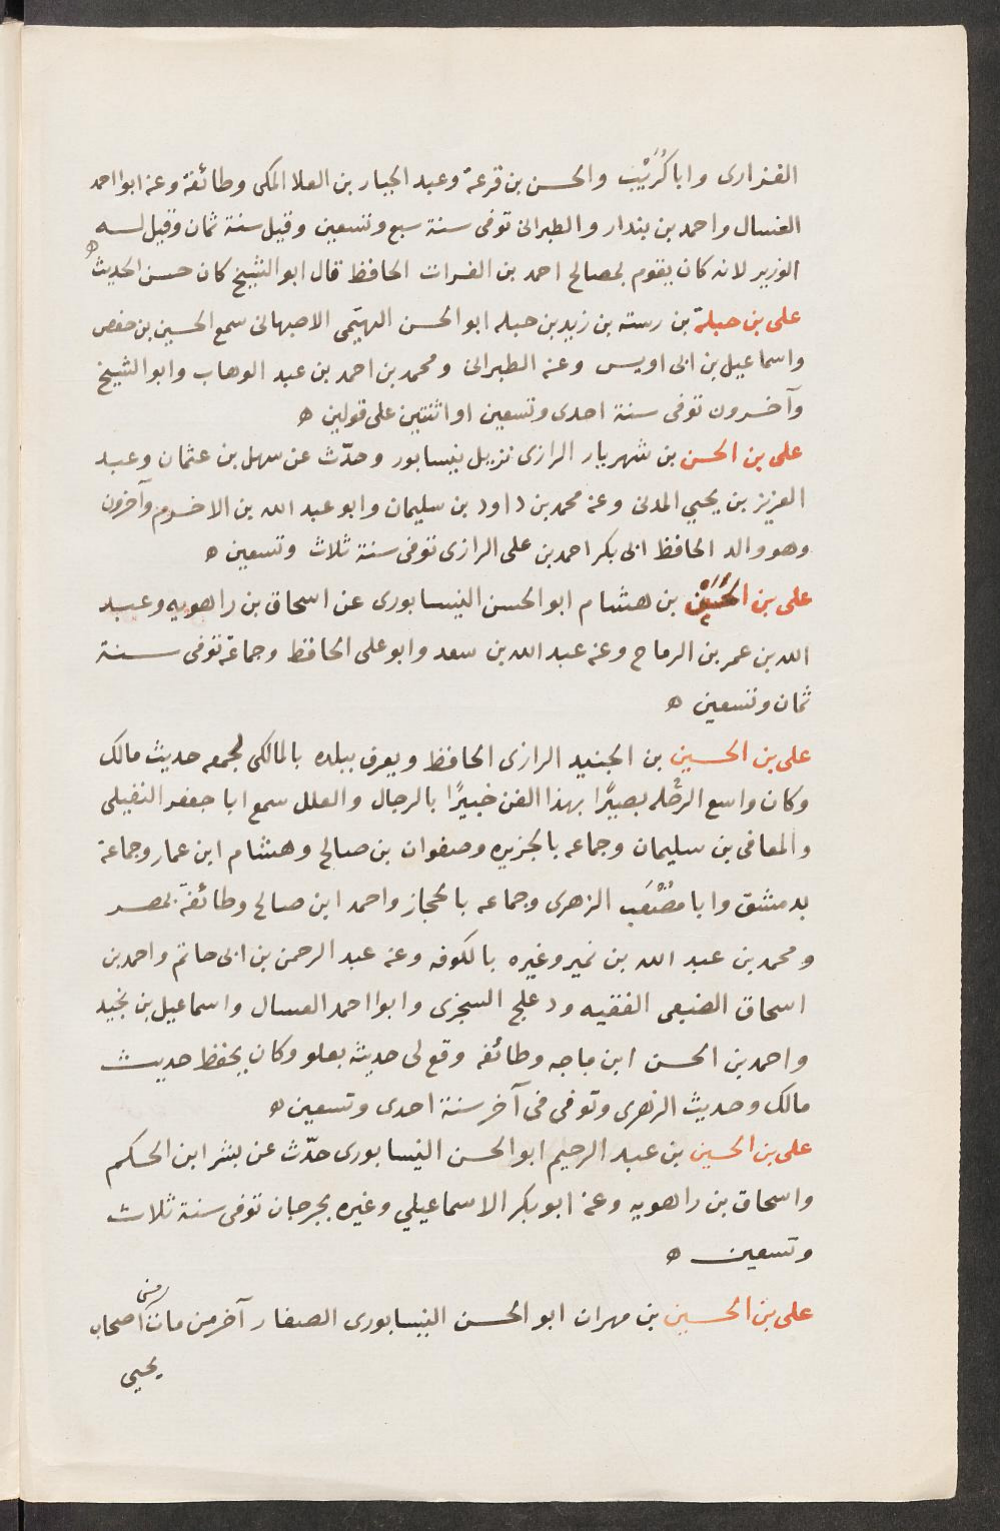 الفزارى وابا كُرَيْب والحسن بن قرعة وعبد الجبار بن العلا المكى وطائفة وعنه ابوا احمد
العسال واحمد بن بندار والطبرانى توفى سنة سبع وتسعين وقيل سنة ثمان وقيل لــه
الوزير لانه كان يقوم بمصالح احمد بن الفرات الحافظ قال ابو الشيخ كان حسن الحديث ه
على بن جبلة بن رسته بن زيد بن جبله ابو الحسن التيمى الاصبهانى سمع الحسين بن حفص
واسماعيل بن ابى اويس وعنه الطبرانى ومحمد بن احمد بن عبد الوهاب وابو الشيخ
وآخرون توفى سنة احدى وتسعين او اثنتين على قولين ه
على بن الحسن بن شهريار الرازى نزيل نيسابور وحدّث عن سهل بن عثمان وعبد
العزيز بن يحيي المدنى وعنه محمد بن داود بن سليمان وابو عبد الله بن الاخرم وآخرون
وهو والد الحافظ ابى بكر احمد بن على الرازى توفى سنة ثلاث وتسعين ه
على بن بن هشام ابو الحسن النيسابورى عن اسحاق بن راهويه وعبيد
الله بن عمر بن الرماح وعنه عبد الله بن سعد وابو على الحافظ وجماعة توفى سنة
ثمان وتسعين ه
على بن الحسين بن الجنيد الرازى الحافظ ويعرف ببلده بالمالكى لجمعه حديث مالك
وكان واسع الرحله بصيرًا بهذا الفن خبيرًا بالرجال والعلل سمع ابا جعفر النفيلى
والمعافى بن سليمان وجماعه بالجزيره وصفوان بن صالح وهشام ابن عمار وجماعة
بدمشق وابا مُصْعَب الزهرى وجماعه بالحجاز واحمد ابن صالح وطائفة بمصر
ومحمد بن عبد الله بن نمير وغيره بالكوفه وعنه عبد الرحمن بن ابى حاتم واحمد بن
اسحاق الضبعى الفقيه ودعلج السجزى وابوا احمد العسال واسماعيل بن نجيد
واحمد بن الحسن ابن ماجه وطائفه وقع لى حديثه بعلو وكان يحفظ حديث
مالك وحديث الزهرى وتوفى فى آخر سنة احدى وتسعين ه
على بن الحسين بن عبد الرحيم ابو الحسن النيسابورى حدّث عن بشر ابن الحكم
واسحاق بن راهويه وعنه ابو بكر الاسماعيلي وغيره بجرجان توفى سنة ثلاث
وتسعين ه
على بن الحسين بن مهران ابو الحسن النيسابورى الصفار آخر من مات من اصحاب
يحيى